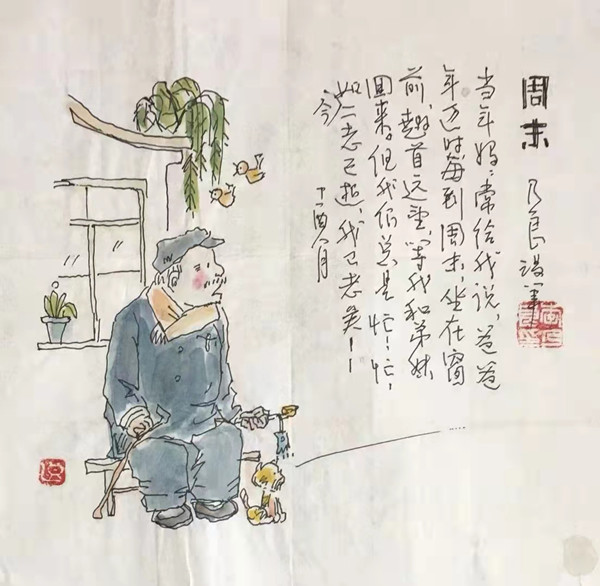 周末 乃良
当年妈妈常给我说，爸爸
年迈时每到周末，坐在窗
前，翘首远望，等我和弟妹
回来。但我们总是忙！忙，
如今二老已逝，我已老矣！！
丁酉八月